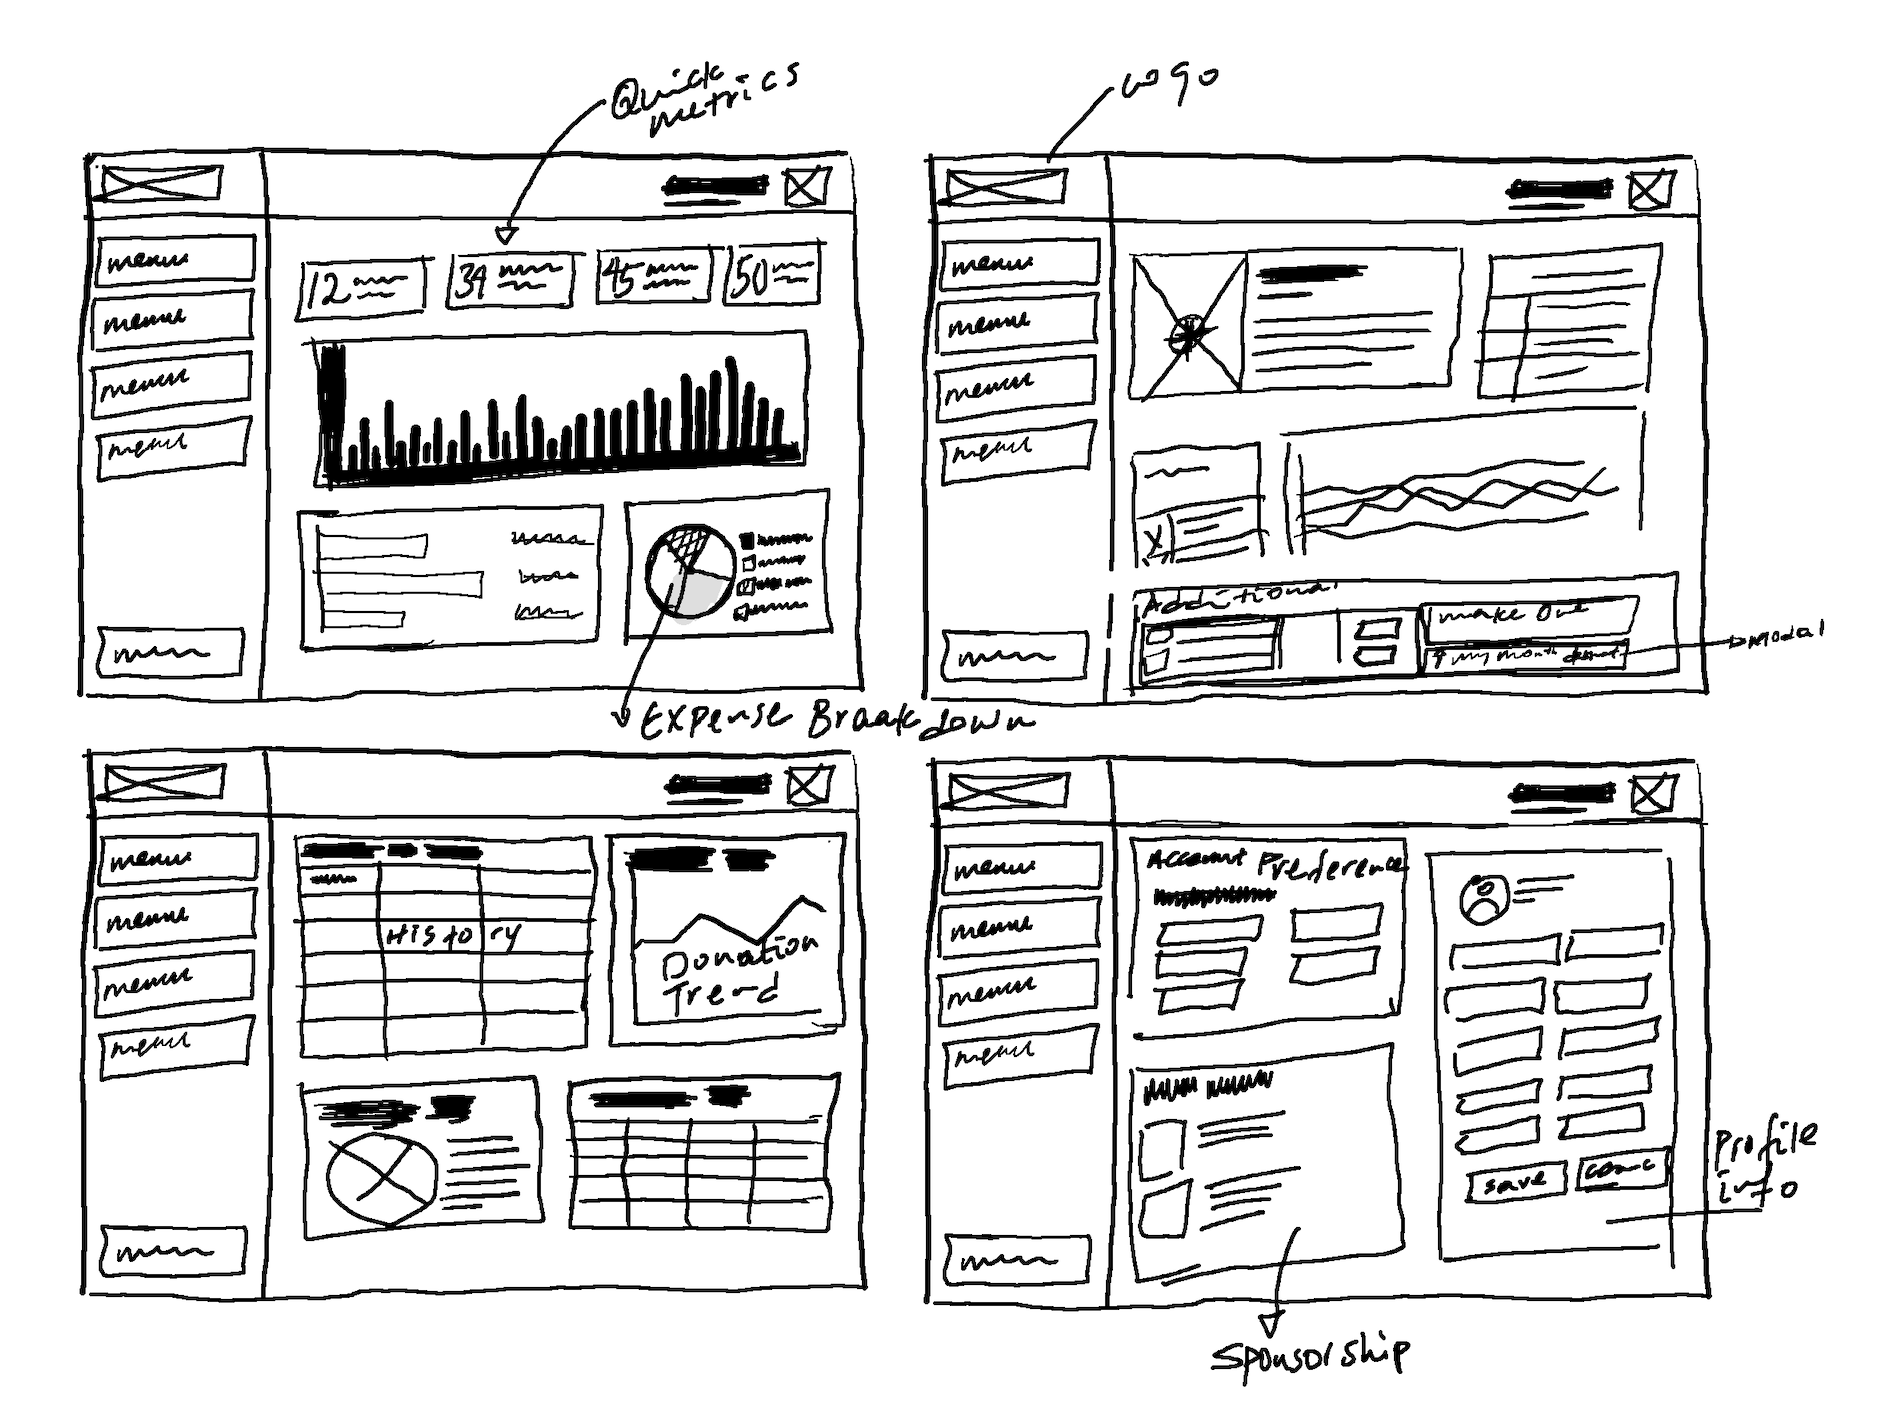 Quick
metrics
Logo
menu
menu
menu
menu
12
34
45
50
Expense Braakdown
menu
menu
menu
menu
Additional
make One
modal
menu
menu
menu
menu
History
Donation
Trend
menu
menu
menu
menu
Account Preference
save
Profile
info
Sponsorship